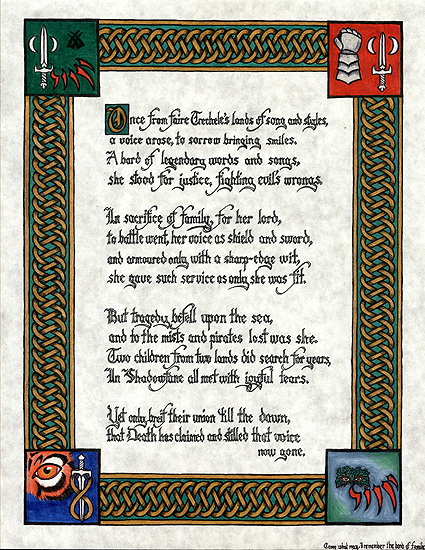 Once from faire Trechele's lands of song and styles,
a voice arose, to sorrow bringing smiles.
A bard of legendary words and songs,
she stood for justice, fighting evil's wrongs.
In sacrifice of family, for her lord,
to battle went, her voice as shield and sword,
and armoured only with a sharp-edge wit,
she gave such service as only she was fit.
But tragedy befell upon the sea,
and to the mists and pirates lost was she.
Two children from two lands did search for years,
In Shadowfane all met with joyful tears.
Yet only breif their union 'till the dawn,
that Death has claimed and stilled that voice
now gone.
Come what may, I remember the bard of